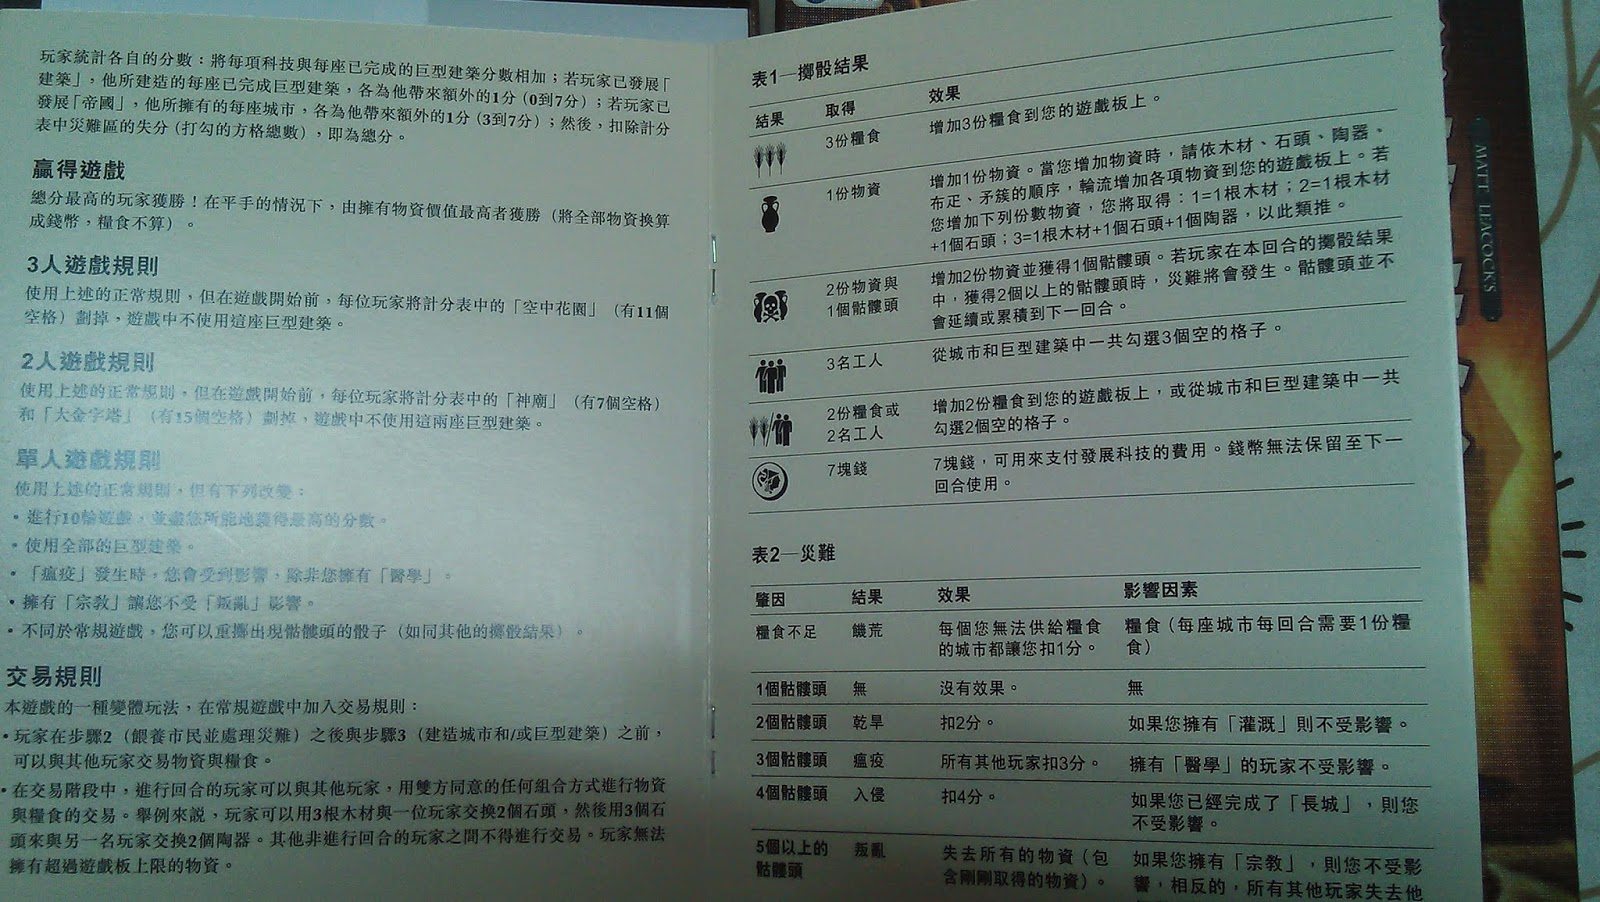 玩家統計各自的分數：將每項科技與每座已完成的巨型建築分數相加；若玩家已發展「
建築」，他所建造的每座已完成巨型建築，各為他帶來額外的1分（0到7分）；若玩家已
發展「帝國」，他所擁有的每座城市，各為他帶來額外的1分（3到7分）；然後，扣除計分
表中災難區的失分（打勾的方格總數），即為總分。
贏得遊戲
總分最高的玩家獲勝！在平手的情況下，由擁有物資價值最高者獲勝（將全部物資換算
成錢幣，糧食不算）。
3人遊戲規則
使用上述的正常規則，但在遊戲開始前，每位玩家將計分表中的「空中花園」（有11個
空格）劃掉，遊戲中不使用這座巨型建築。
2人遊戲規則
使用上述的正常規則，但在遊戲開始前，每位玩家將計分表中的「神廟」（有7個空格）
和「大金字塔」（有15個空格）劃掉，遊戲中不使用這兩座巨型建築。
單人遊戲規則
使用上述的正常規則，但有下列改變：
•進行10輪遊戲，並盡您所能地獲得最高的分數。
•使用全部的巨型建築。
•「瘟疫」發生時，您會受到影響，除非您擁有「醫學」。
•擁有「宗教」讓您不受「叛亂」影響。
•不同於常規遊戲，您可以重擲出現骷髏頭的骰子（如同其他的擲骰結果）。
交易規則
本遊戲的一種變體玩法，在常規遊戲中加入交易規則：
•玩家在步驟2（餵養市民並處理災難）之後與步驟3（建造城市和/或巨型建築）之前，
可以與其他玩家交易物資與糧食。
•在交易階段中，進行回合的玩家可以與其他玩家，用雙方同意的任何組合方式進行物資
與糧食的交易。舉例來說，玩家可以用3根木材與一位玩家交換2個石頭，然後用3個石
頭來與另一名玩家交換2個陶器。其他非進行回合的玩家之間不得進行交易。玩家無法
擁有超過遊戲板上限的物資。
表1—擲骰結果
結果 取得 效果
3份糧食 增加3份糧食到您的遊戲板上。
1份物資 增加1份物資。當您增加物資時，請依木材、石頭、陶器、
布疋、矛簇的順序，輪流增加各項物資到您的遊戲板上。若
您增加下列份數物資，您將取得：1=1根木材；2=1根木材
+1個石頭；3=1根木材+1個石頭+1個陶器，以此類推。
2份物資與 增加2份物資並獲得1個骷髏頭。若玩家在本回合的擲骰結果
1個骷髏頭 中，獲得2個以上的骷髏頭時，災難將會發生。骷髏頭並不
會延續或累積到下一回合。
3名工人 從城市和巨型建築中一共勾選3個空的格子。
2份糧食或 增加2份糧食到您的遊戲板上，或從城市和巨型建築中一共
2名工人 勾選2個空的格子。
7塊錢 7塊錢，可用來支付發展科技的費用。錢幣無法保留至下一
回合使用。
表2—災難
肇因 結果 效果 影響因素
糧食不足 饑荒 每個您無法供給糧食 糧食（每座城市每回合需要1份糧
的城市都讓您扣1分。 食）
1個骷髏頭 無 沒有效果。 無
2個骷髏頭 乾旱 扣2分。 如果您擁有「灌溉」則不受影響。
3個骷髏頭 瘟疫 所有其他玩家扣3分。 擁有「醫學」的玩家不受影響。
4個骷髏頭 入侵 扣4分。 如果您已經完成了「長城」，則您
不受影響。
5個以上的 叛亂 失去所有的物資（包 如果您擁有「宗教」，則您不受影
骷髏頭 含剛剛取得的物資）。 響，相反的，所有其他玩家失去他
MATT LEACOCK'S